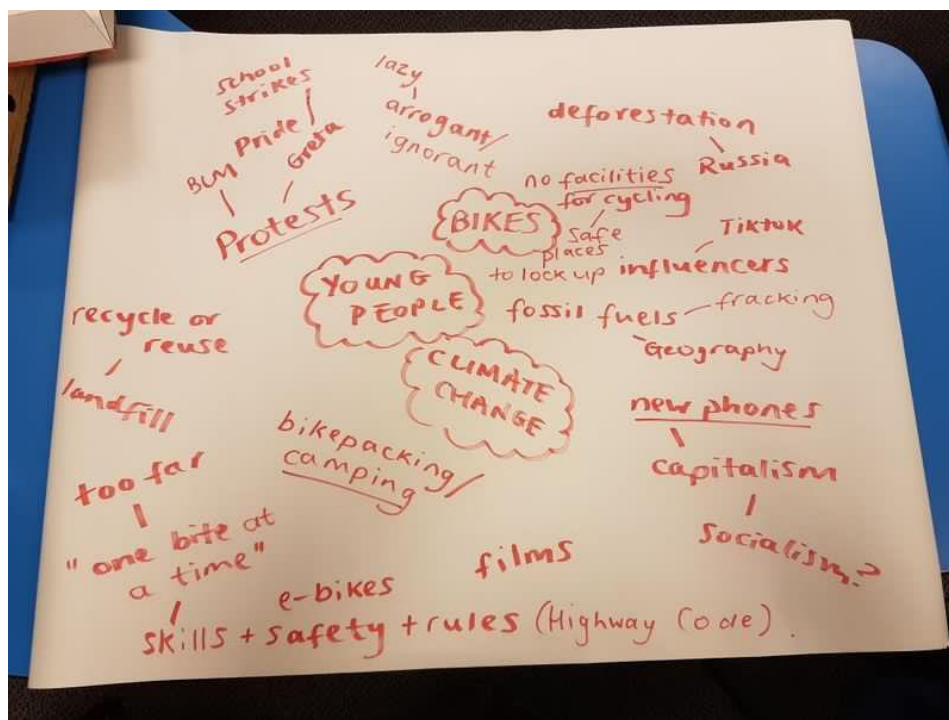 school
strikes
BLM Pride Greta
Protests
lazy
arrogant/
ignorant
deforestation
Russia
BIKES
no facilities
for cycling
safe
places
to lock up
influencers
TikTok
YOUNG
PEOPLE
fossil fuels
fracking
Geography
CLIMATE
CHANGE
recycle or
reuse
landfill
new phones
capitalism
Socialism?
bikepacking/
camping
too far
"one bite at
a time"
e-bikes
films
skills + safety + rules (Highway Code).